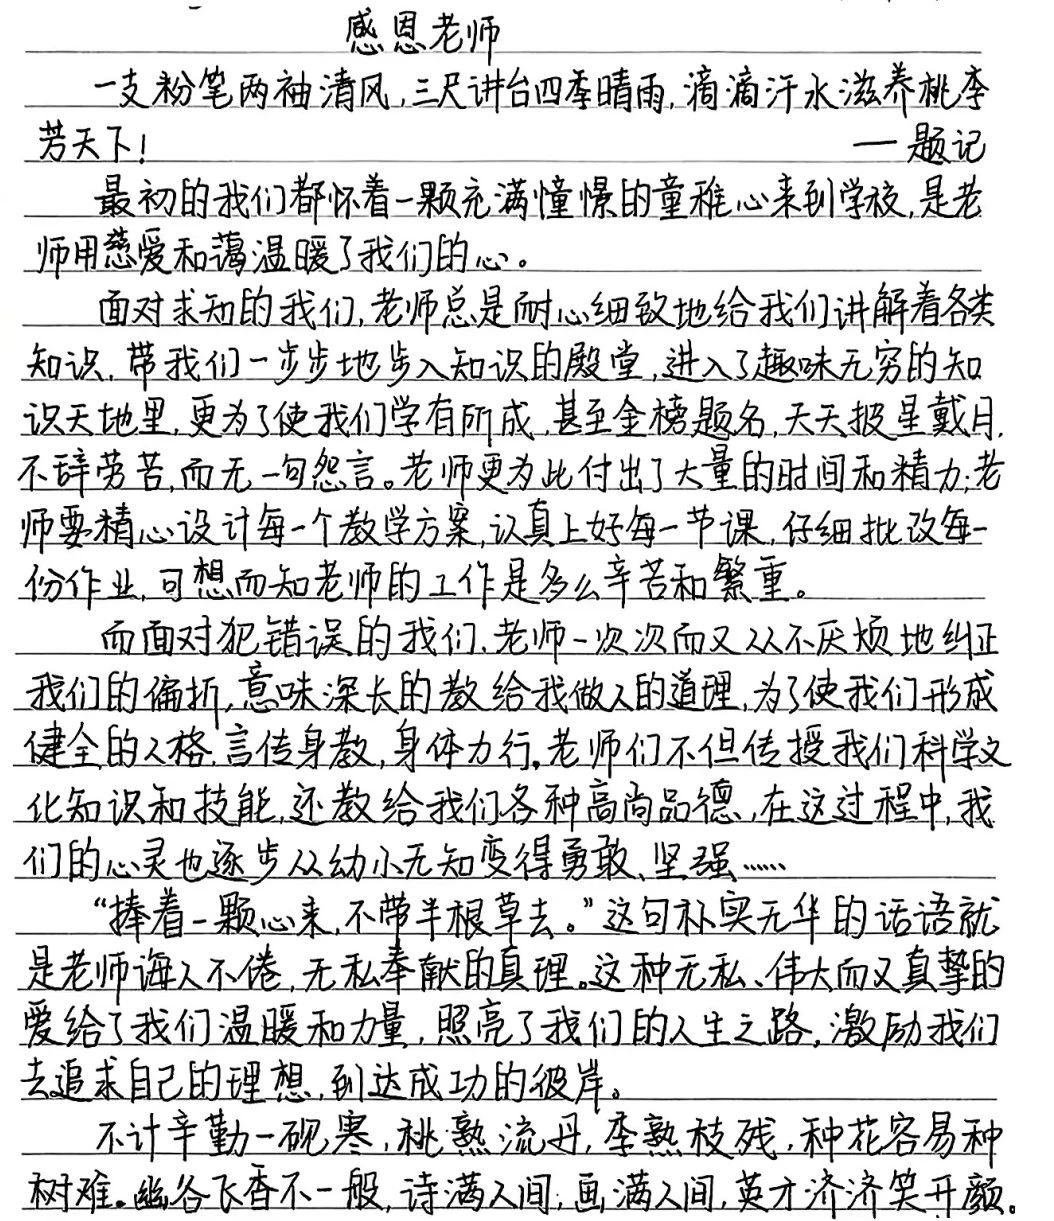 感恩老师
一支粉笔两袖清风,三尺讲台四季晴雨,滴滴汗水滋养桃李
芳天下!
一题记
最初的我们都怀着一颗充满憧憬的童稚心来到学校,是老
师用慈爱和蔼温暖了我们的心。
面对求知的我们,老师总是耐心细致地给我们讲解着各类
知识,带我们一步步地步入知识的殿堂,进入了趣味无穷的知
识天地里,更为了使我们学有所成,甚至金榜题名,天天披星戴月,
不辞劳苦,而无一句怨言。老师更为此付出了大量的时间和精力;老
师要精心设计每一个教学方案,认真上好每一节课,仔细批改每一
份作业,可想而知老师的工作是多么辛苦和繁重。
而面对犯错误的我们,老师一次次而又从不厌烦地纠正
我们的偏折,意味深长的教给我做人的道理,为了使我们形成
健全的人格,言传身教,身体力行。老师们不但传授我们科学文
化知识和技能,还教给我们各种高尚品德,在这过程中,我
们的心灵也逐步从幼小无知变得勇敢、坚强……
“捧着一颗心来,不带半根草去。”这句朴实无华的话语就
是老师诲人不倦,无私奉献的真理。这种无私、伟大而又真挚的
爱给了我们温暖和力量,照亮了我们的人生之路,激励我们
去追求自己的理想,到达成功的彼岸。
不计辛勤一砚寒,桃熟流丹,李熟枝残,种花容易种
树难。幽谷飞香不一般,诗满人间,画满人间,英才济济笑开颜。